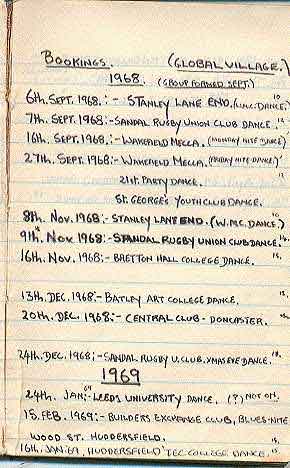 BOOKINGS. (GLOBAL VILLAGE.)
1968. (GROUP FORMED SEPT.)
6th. SEPT. 1968. :- STANLEY LANE END. (W.M.C. DANCE.) 10
7th. SEPT. 1968:- SANDAL RUGBY UNION CLUB DANCE. 12
16th. SEPT. 1968:- WAKEFIELD MECCA. (MONDAY NITE DANCE)
27th. SEPT. 1968:- WAKEFIELD MECCA. (FRIDAY NITE DANCE)
21st. PARTY DANCE. 12
St. GEORGES YOUTH CLUB DANCE.
8th. NOV. 1968:- STANLEY LANE END. (W.M.C. DANCE.) 10
9th. NOV. 1968:- SANDAL RUGBY UNION CLUB DANCE. 14
16th. NOV. 1968:- BRETTON HALL COLLEGE DANCE. 15
13th. DEC. 1968:- BATLEY ART COLLEGE DANCE. 15
20th. DEC. 1968:- CENTRAL CLUB - DONCASTER.
24th. DEC. 1968:- SANDAL RUGBY U. CLUB. XMAS EVE DANCE. 18
1969
24th. JAN. 69 LEEDS UNIVERSITY DANCE. (?) NOT ON.
15. FEB. 1969:- BUILDERS EXCHANGE CLUB, BLUES-NITE
WOOD ST. HUDDERSFIELD. 15
16th. JAN. 69. HUDDERSFIELD TEC. COLLEGE DANCE. 15